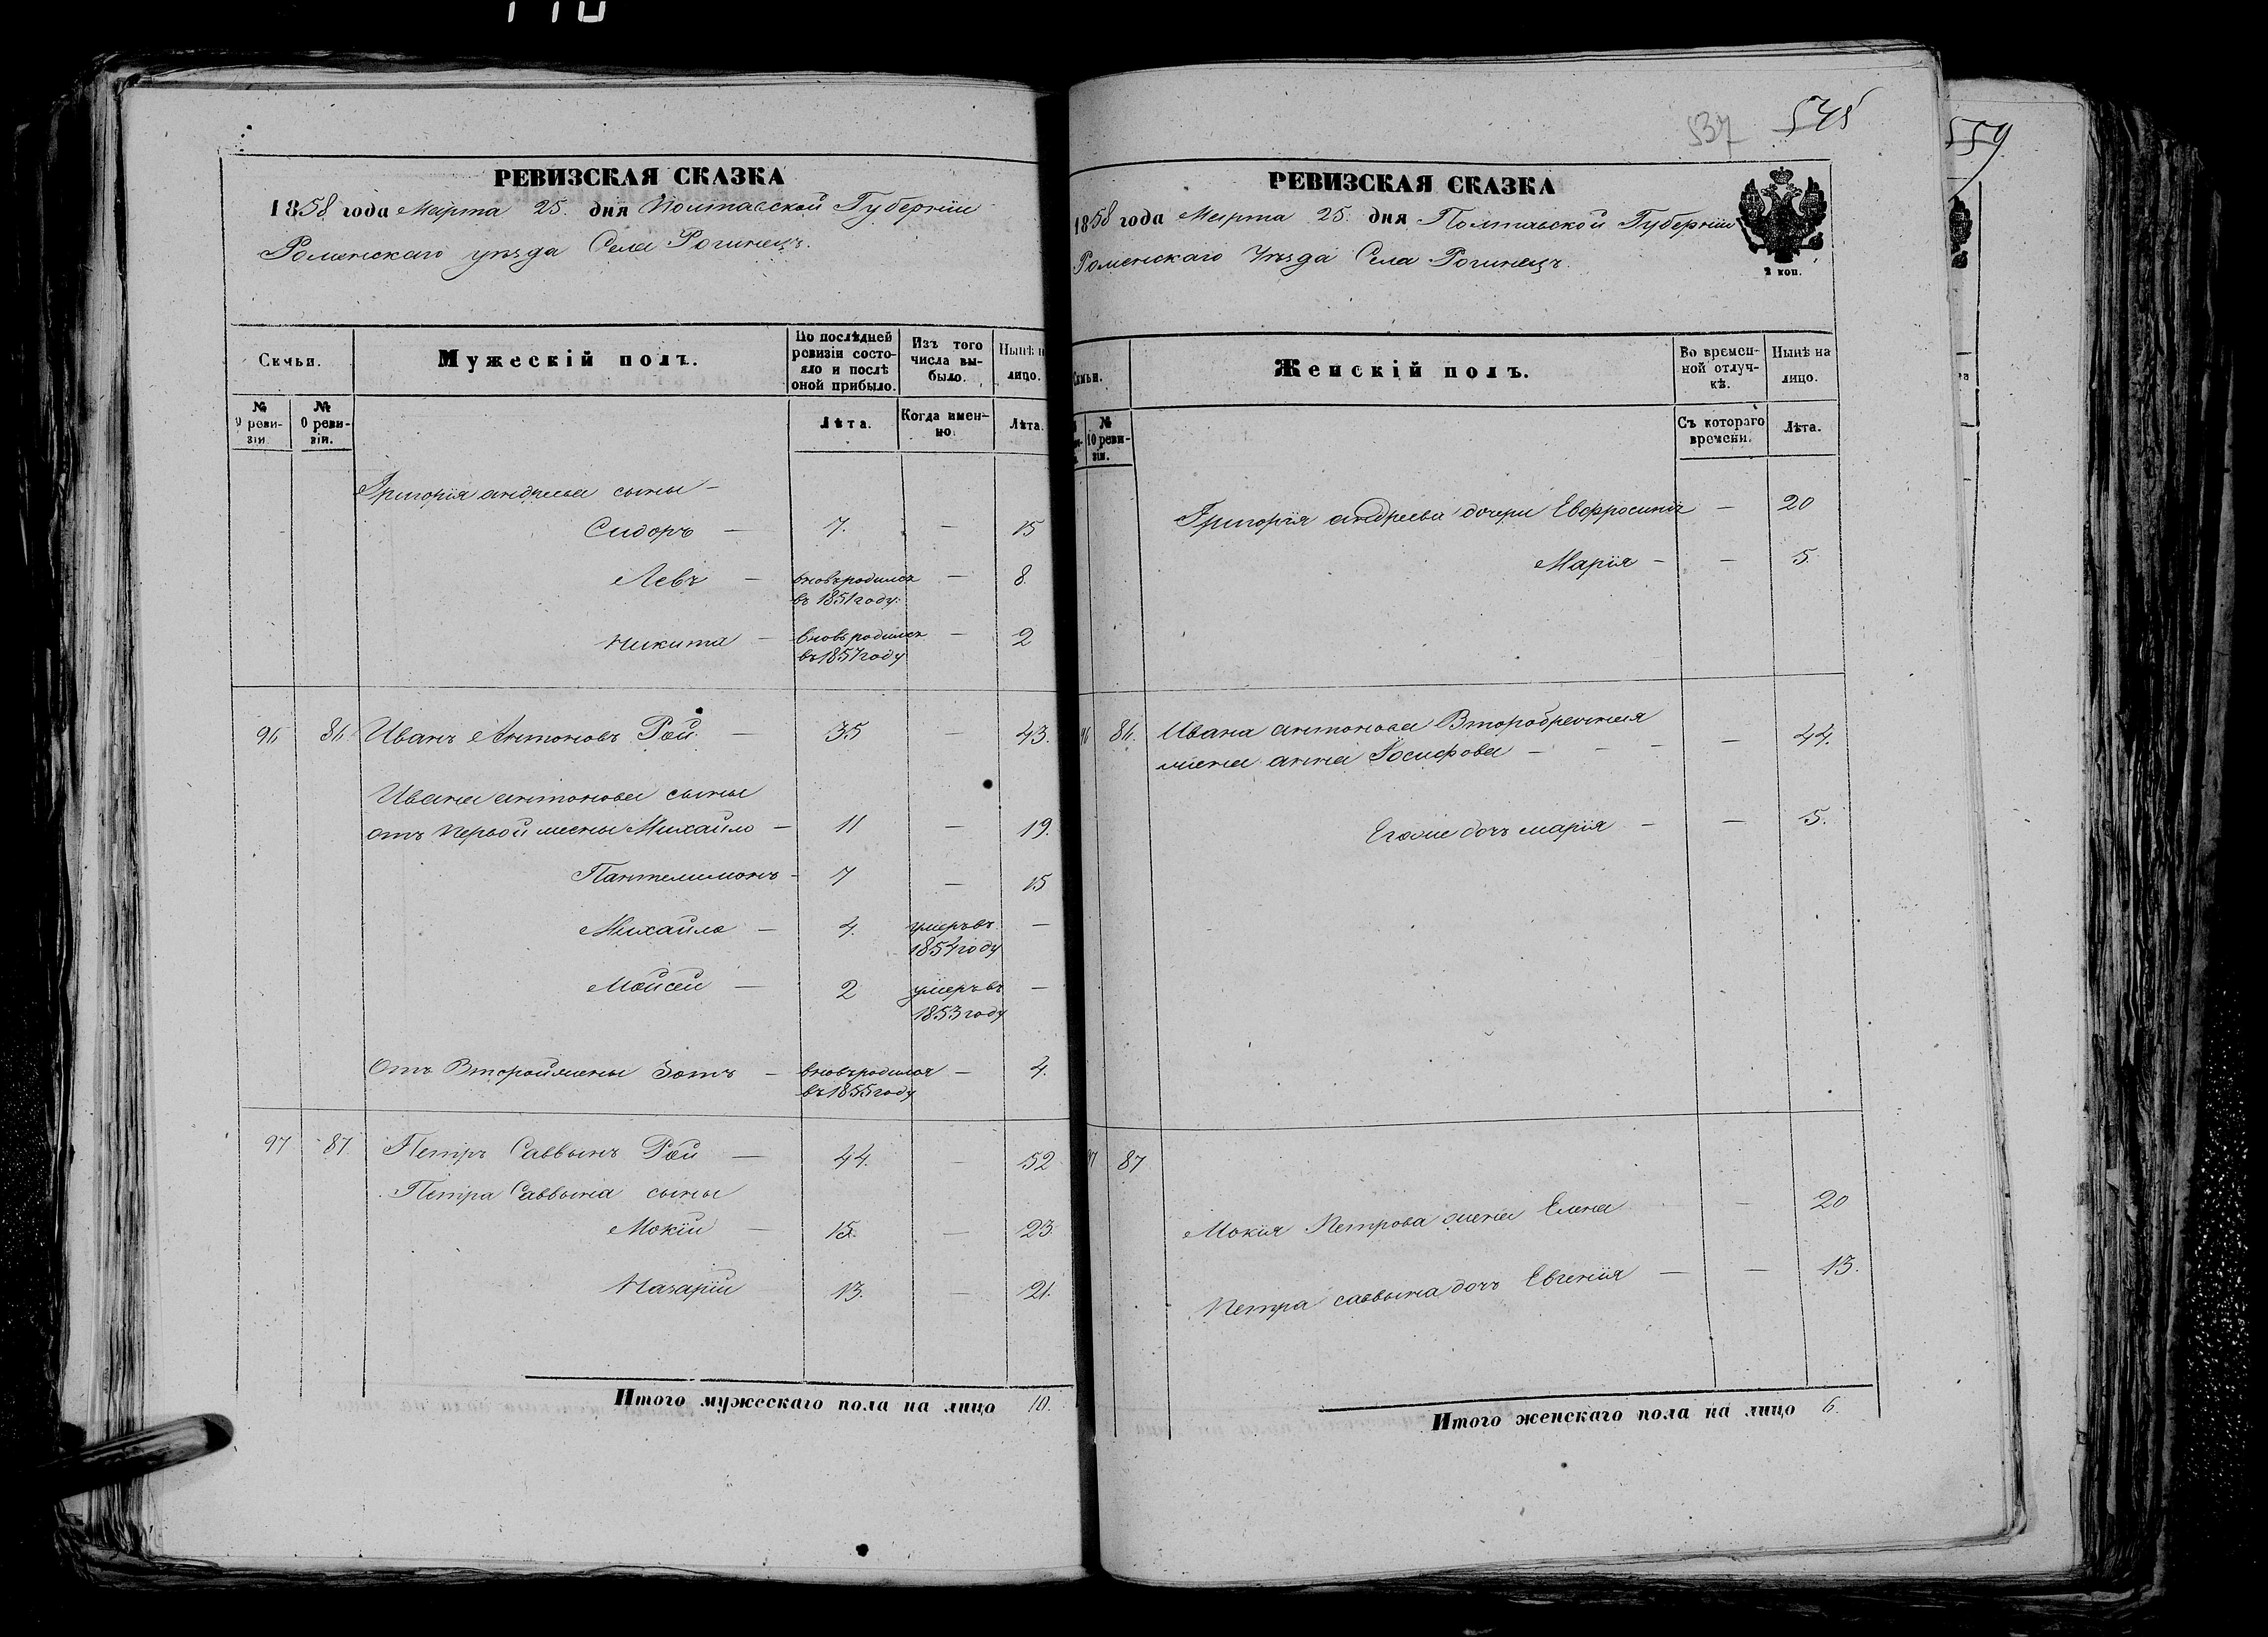 РЕВИЗСКАЯ СКАЗКА
1858 года Марта 25. дня Полтавской Губернии
Роменскаго уѣзда Села Рогинецъ.
Семьи.
Мужескій полъ.
По послѣдней ревизіи состояло и послѣ оной прибыло.
Изъ того числа выбыло.
Нынѣ на лицо.
№ 9 ревизіи
№ 10 ревизіи.
Лѣта.
Когда именно.
Лѣта.
Григорія андреева сыны –
Сидоръ – 7. – 15
Левъ – вновьродился въ 1851 году: – 8.
Никита – вновьродился въ 1857 году – 2
96 86. Иванъ Антоновъ Рой – 35 – 43.
Ивана антонова сыны
отъ первой жены Михайло – 11 – 19.
Пантелимонъ – 7 – 15
Михайло – 4. умеръ въ 1854 году –
Мойсей – 2 умеръ въ 1853 году –
Отъ Второй жены Зотъ – вновьродился въ 1855 году – 4.
97 87. Петръ Саввинъ Рой – 44. – 52
Петра Саввина сыны
Мокій – 15. – 23.
Назарій 13. – 21.
Итого мужескаго пола на лицо 10.
537 545
РЕВИЗСКАЯ СКАЗКА
1858 года Марта 25. дня Полтавской Губерніи
Роменскаго Уѣзда Села Рогинецъ.
2 коп.
Семьи.
Женскій полъ.
Во временной отлучкѣ.
Нынѣ на лицо.
№ 10 ревизіи.
Съ котораго времени.
Лѣта.
Григорія андреева дочери Евфросинія – 20
Марія – – 5.
96 86. Ивана антонова Второбрачная
жена анна Іосифова – – – – 44.
Егоже дочь марія – – 5.
97 87
Мокія Петрова жена Елена – 20
Петра саввина дочь Евгенія – – 13.
Итого женскаго пола на лицо 6.
559